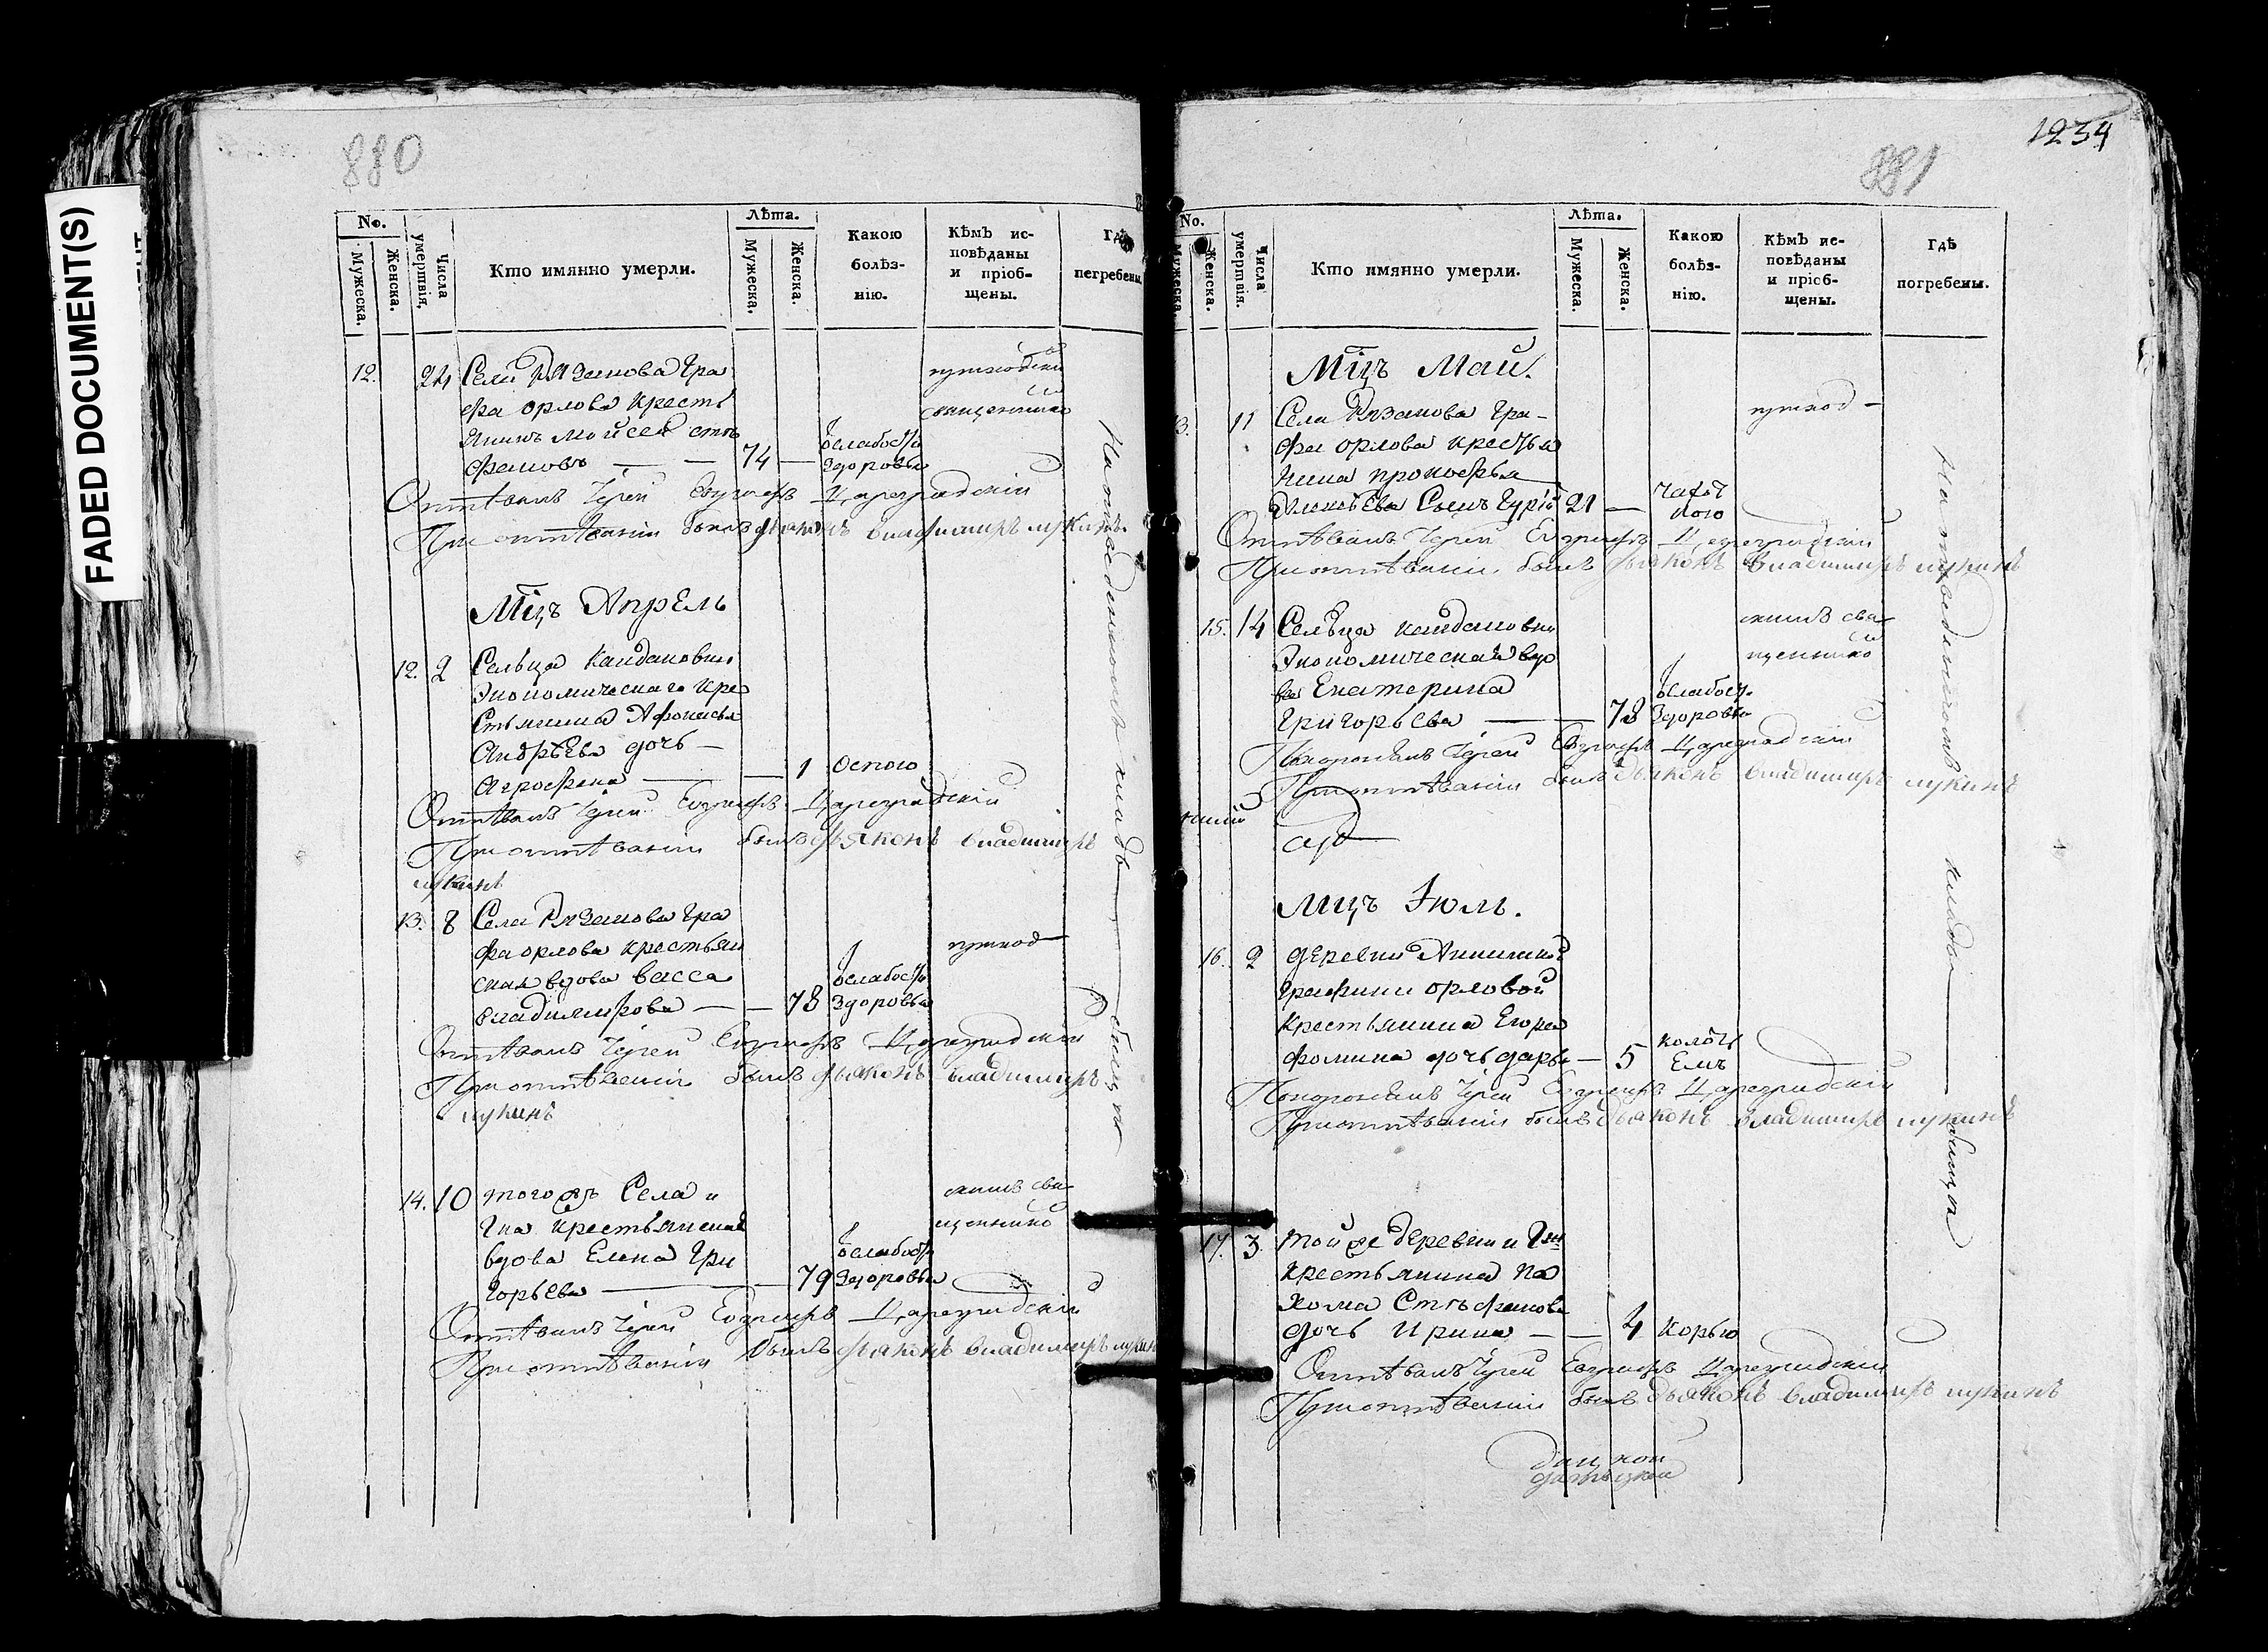 FADED DOCUMENT(S)
880
No.
Лѣта.
Мужеска.
Женска.
Числа умертвія.
Кто имянно умерли.
Мужеска.
Женска.
Какою болѣз-
нію.
Кѣмъ ис-
повѣданы
и пріоб-
щены.
Гдѣ
погребены.
12. 24 Села Рязанова Гра
фа орлова Кресть
янинъ Моисей Сте
фановъ — — 74 — Слабостію здоровья
приходскимъ
священникомъ
Отпѣвалъ Іерей Цареградскій
При отпѣваніи былъ дьяконъ владимиръ лукинъ
Мцъ Апрель
12. 2 Сельца
Экономическаго Кре
стьянина Афонасья
Андрѣева дочь —
Агрофена — — 1 оспою
Отпѣвалъ Іерей Цареградскій
При отпѣваніи былъ дьяконъ владимиръ
лукинъ
13. 8 Села Рязанова Гра
фа орлова крестьян
ская вдова васса
владимирова — — 78 слабостію здоровья
приход—
Отпѣвалъ Іерей Цареградскій
При отпѣваніи былъ дьяконъ владимиръ
лукинъ
14. 10 тогожъ Села и
Гна крестьянская
вдова Елена Гри
горьева — — 79 слабостію здоровья
онымъ свя
щенником
Отпѣвалъ Іерей Цареградскій
При отпѣваніи былъ дьяконъ владимиръ лукин
На отведенномъ кладбищи
1234
881
No.
Лѣта.
Мужеска.
Женска.
Числа умертвія.
Кто имянно умерли.
Мужеска.
Женска.
Какою
болѣз-
нію.
Кѣмъ ис-
повѣданы
и пріоб-
щены.
Гдѣ
погребены.
Мцъ Май.
3. 11 Села Рязанова Гра-
фа орлова крестья
нина прокофья
Сынъ Гурій 21 — чахот
кою
приход—
Отпѣвалъ Іерей Цареградскій
При отпѣваніи былъ дьяконъ владимиръ лукинъ
15. 14 Сельца
Экономическая вдо
ва Екатерина
Григорьева — — 78 слабост. здоровья
онымъ свя
щенником
Похоронялъ Іерей Цареградскій
При отпѣваніи былъ дьяконъ владимиръ лукинъ
Мцъ Іюль.
16. 2 деревни
Графини орловой
крестьянина Егора
фомина дочь дарья — 5 колоть
Емъ
Похоронялъ Іерей Цареградскій
При отпѣваніи былъ дьяконъ владимиръ лукинъ
17. 3. той же деревни и Гжи
крестьянина Па
хома Стефанова
дочь Ирина — — 4 Корью
Отпѣвалъ Іерей Цареградскій
При отпѣваніи былъ дьяконъ владимиръ лукинъ
На отведенномъ кладбищи